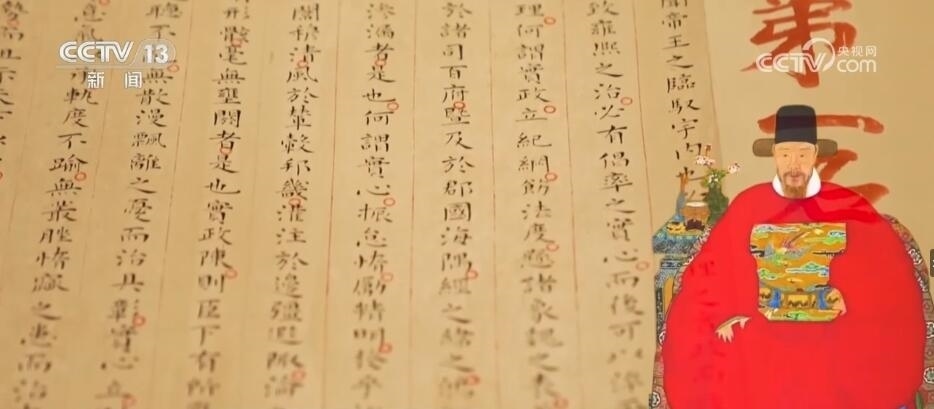 CCTV 13
新闻
央视网
CCTV.com
弟
一
聞帝王之臨馭宇内也
致雍熙之治必有倡率之實心而後可以
理何謂實政立紀綱飭法度懸諸象魏之表
於諸司百府暨及於郡國海隅經之緯之
滲漏者是也何謂實心振怠惰勵精明發乎
闈穆清風於輦轂邦畿灌注於邊疆遐陬淪
形骸毫無壅閼者是也實政陳則臣下有所
聽不亂無散漫飄離之憂而治具彰實心立
意氣軌度不踰無叢脞惰窳之患而治